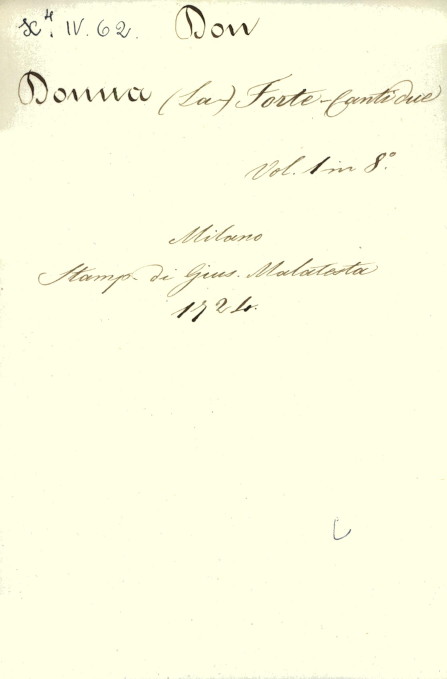 X⁴. IV. 62. Don
Donna (La) Forte - Canti due
Vol. 1 in 8.°
Milano
Stamp. di Gius. Malatesta
1724.